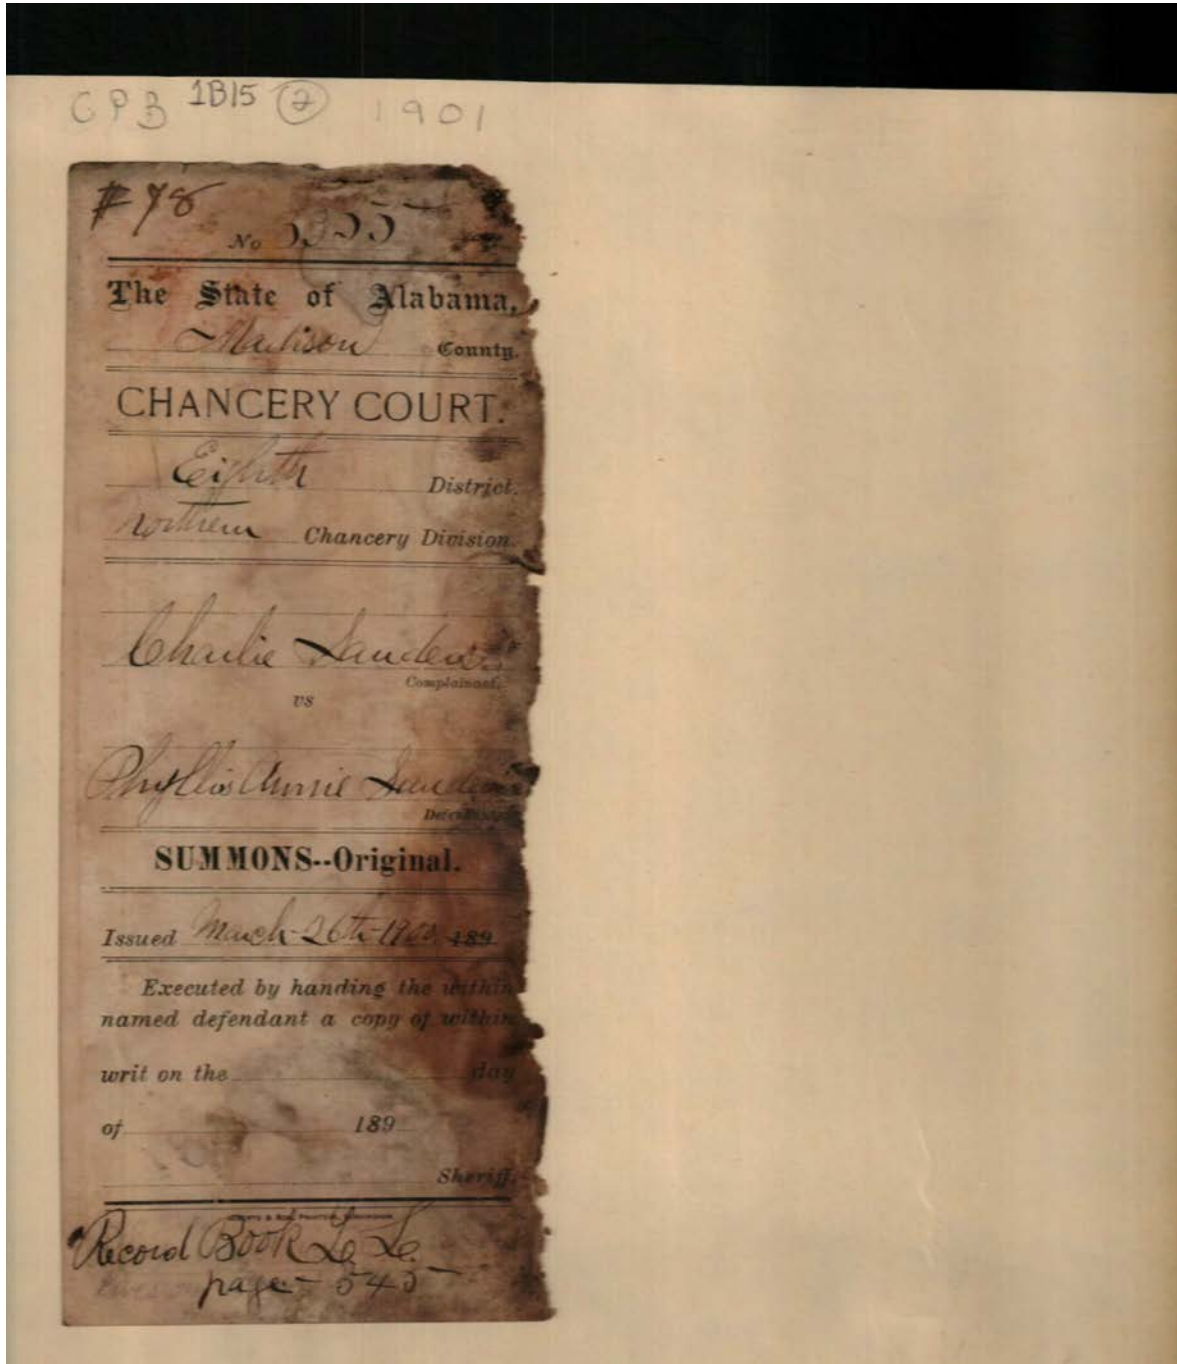 CPB 1B15 2 1901
# 78
No
The State of Alabama,
Madison County.
CHANCERY COURT.
Eighth District.
Northern Chancery Division.
Charlie Sanders
Complainant.
vs
Phyllis Annie Sanders
Defendant
SUMMONS--Original.
Issued March-26th-1900 189
Executed by handing the within
named defendant a copy of within
writ on the day
of 189
Sheriff.
Record Book
page- 545